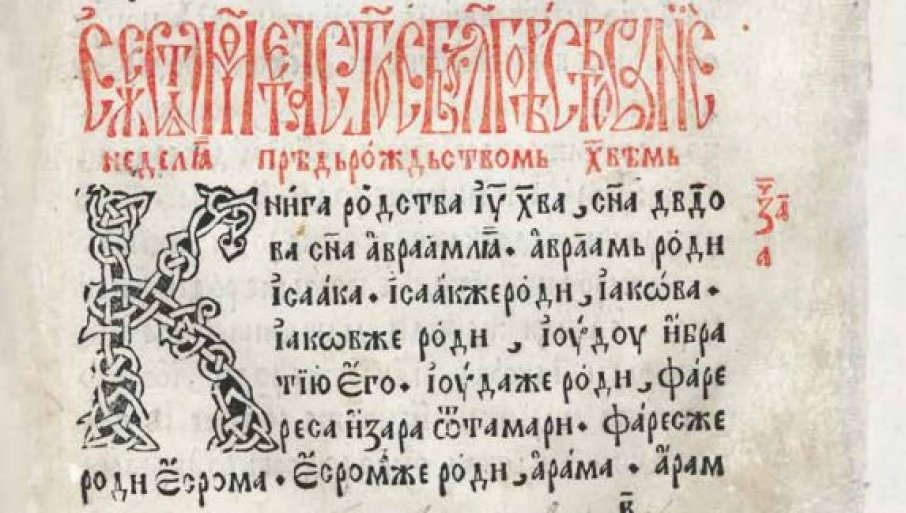 недєлꙗ прѣдьрождьствомь хв҃ѣмь
Книга родства іу҃ хв҃а, сн҃а дв҃дѡ
ва сн҃а авраамлꙗ. авраамь роди
ісаака. ісаакжероди, іакѡва.
іакѡвже роди, іоудоу ибра
тію єго. іоудаже роди, фарє
рєса изара ѿтамари. фарєсжє
роди єсрома. єсромже роди, арама. арам
за҃
а